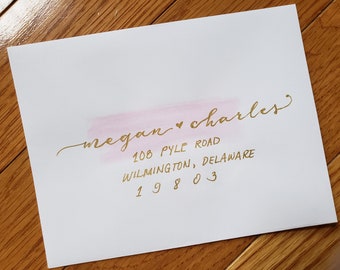 megan ♥ charles
108 PYLE ROAD
WILMINGTON, DELAWARE
19803